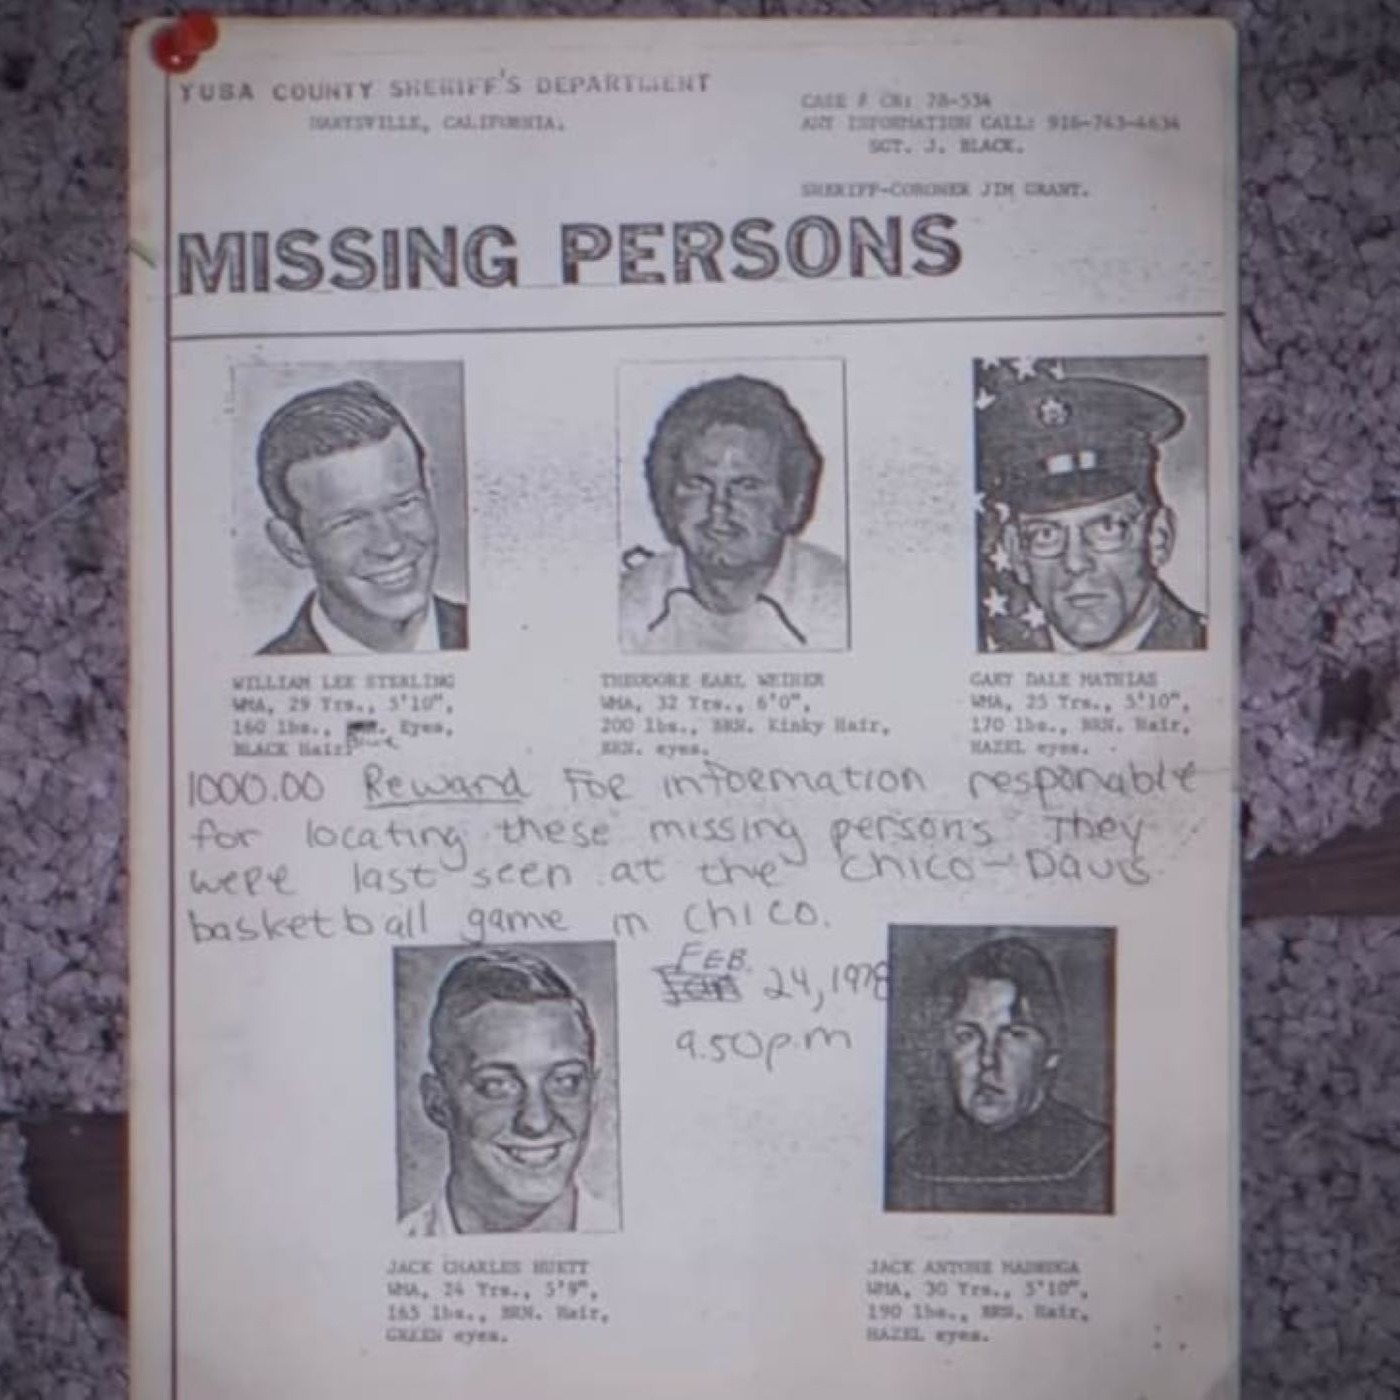 YUBA COUNTY SHERIFF'S DEPARTMENT
MARYSVILLE, CALIFORNIA.
CASE # CR: 78-534
ANY INFORMATION CALL: 916-743-4634
SGT. J. BLACK.
SHERIFF-CORONER JIM GRANT.
MISSING PERSONS
WILLIAM LEE STERLING
WMA, 29 Yrs., 5'10",
160 lbs., Eyes,
BLACK Hair
THEODORE EARL WEIHER
WMA, 32 Yrs., 6'0",
200 lbs., BRN. Kinky Hair,
BRN. eyes.
GARY DALE MATHIAS
WMA, 25 Yrs., 5'10",
170 lbs., BRN. Hair,
HAZEL eyes.
1000.00 Reward For information responable
for locating these missing persons They
were last seen at the Chico-Davis
basketball game in Chico.
FEB.
24, 1978
9.50 p.m
JACK CHARLES HUETT
WMA, 24 Yrs., 5'9",
165 lbs., BRN. Hair,
GREEN eyes.
JACK ANTONE MADRUGA
WMA, 30 Yrs., 5'10",
190 lbs., BRN. Hair,
HAZEL eyes.